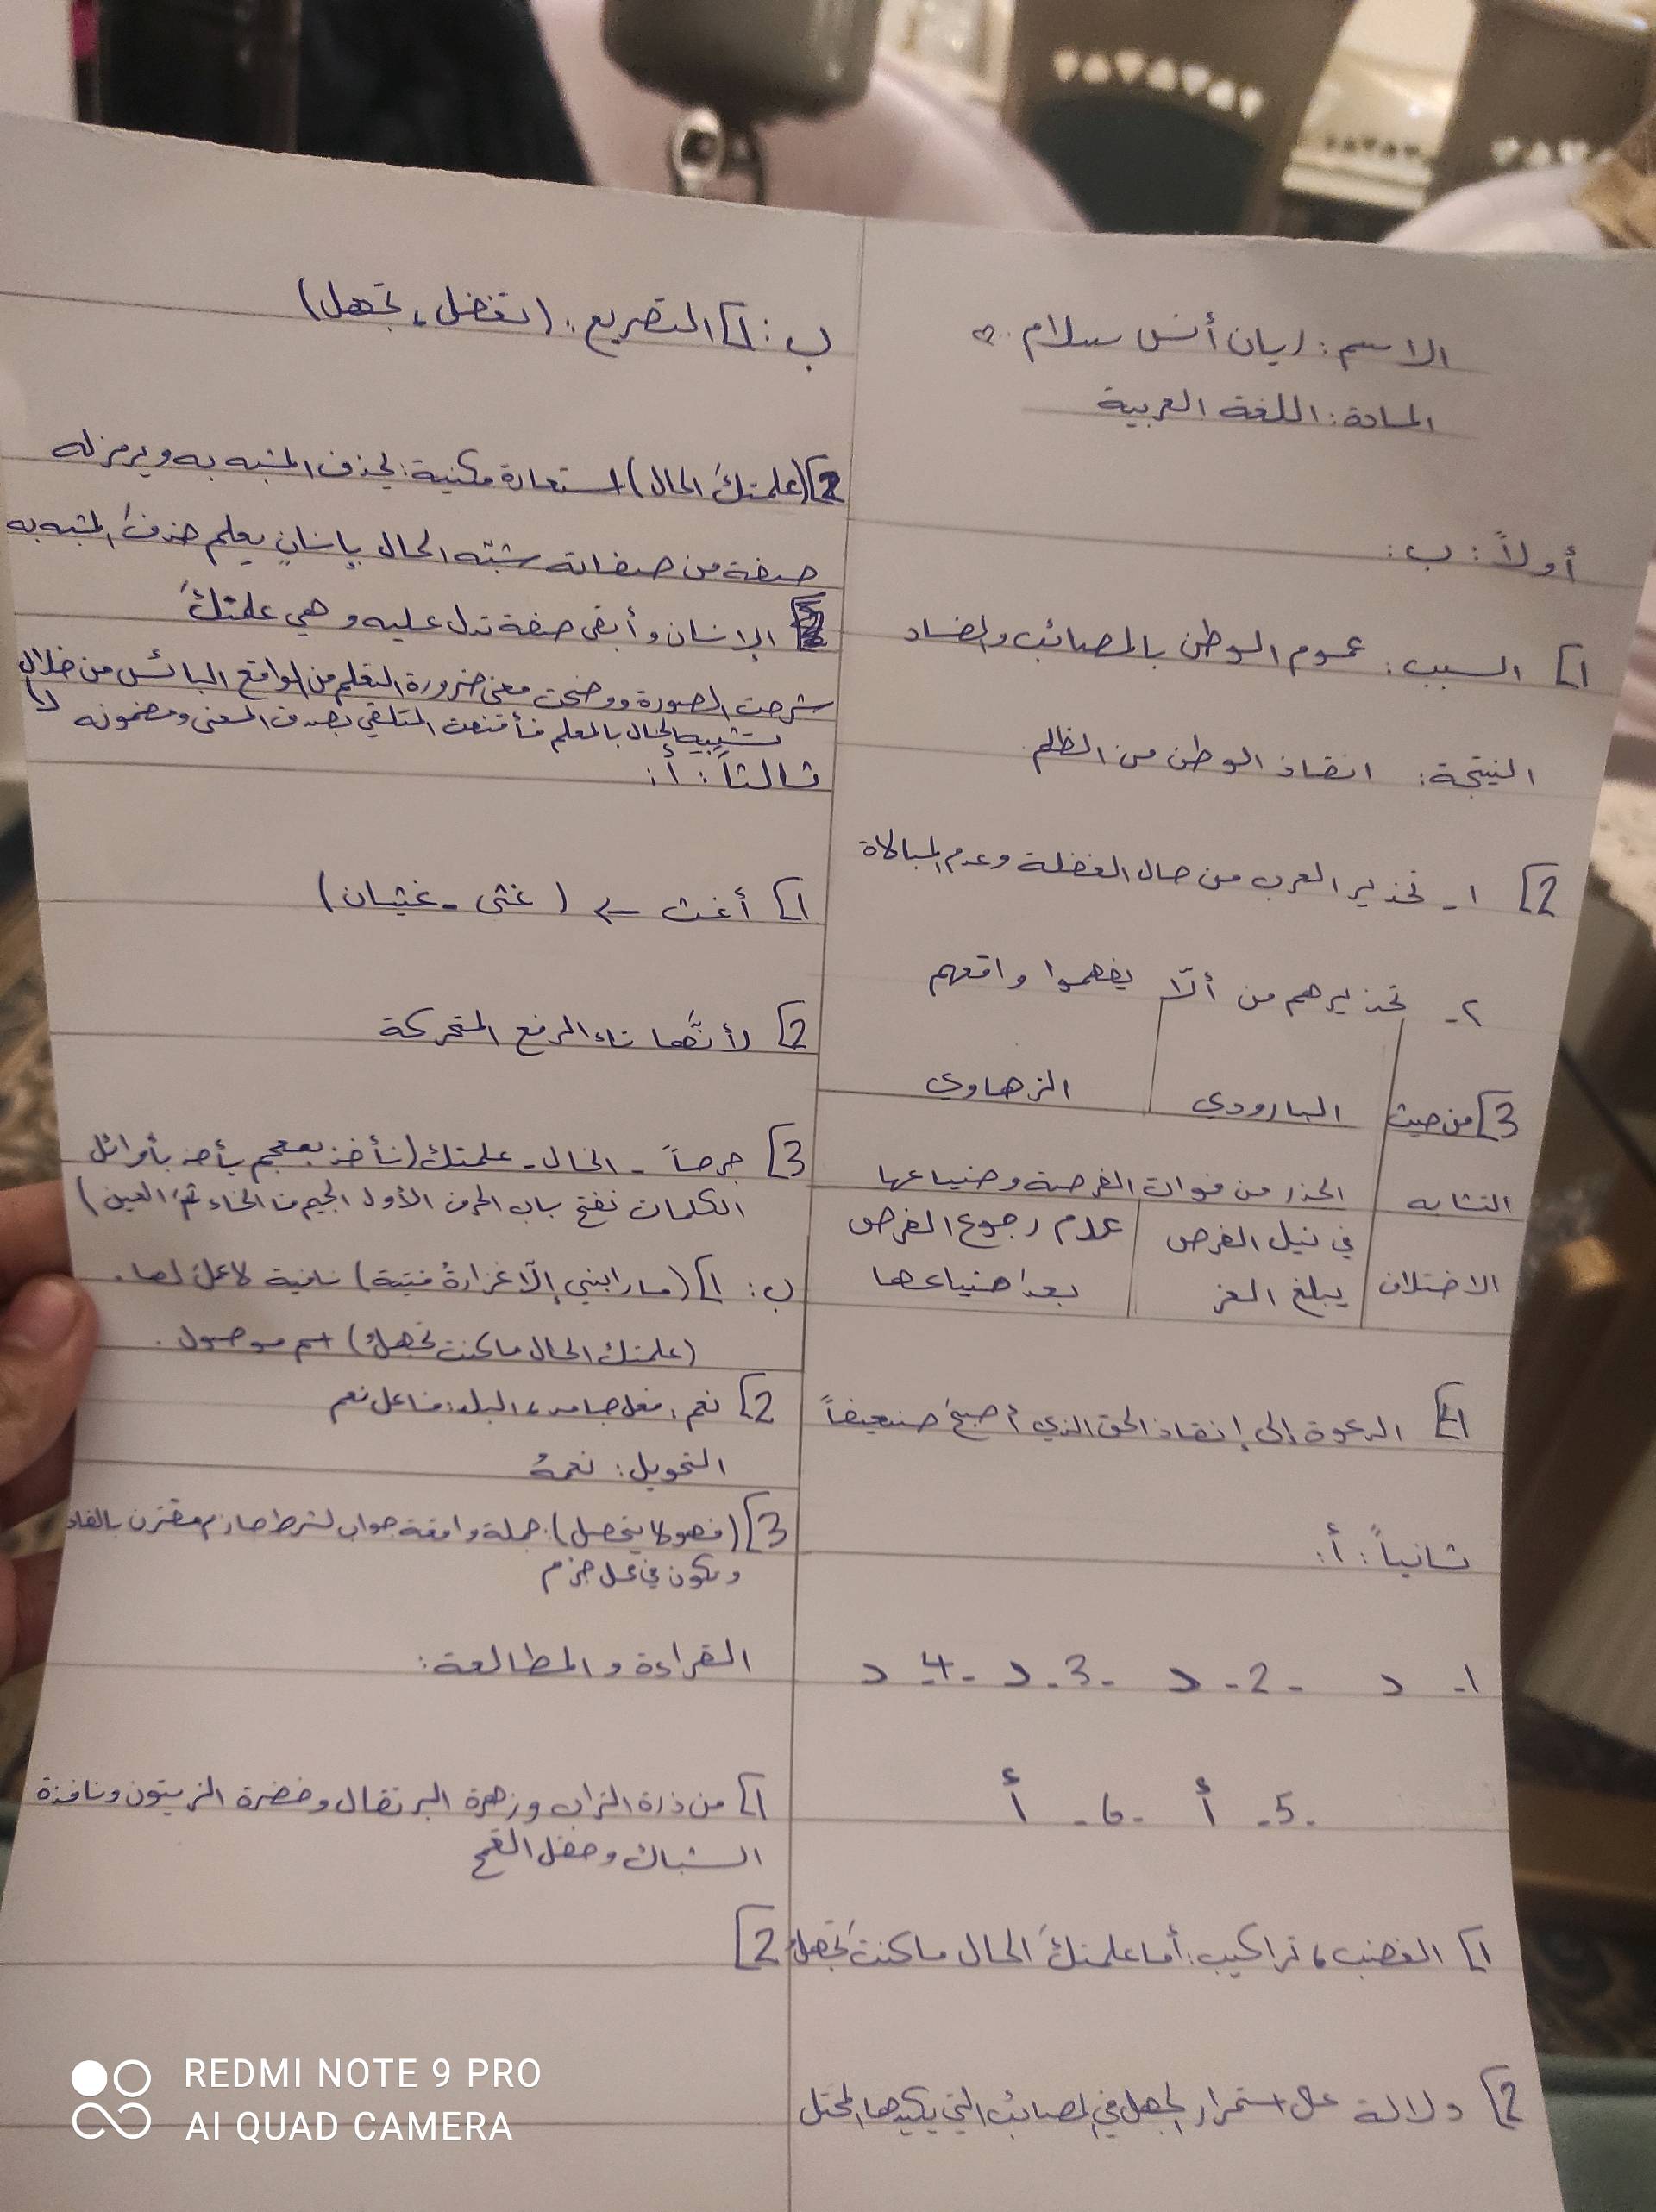 الاسم: ريان أنس سلام
المادة: اللغة العربية
أولاً: ب:
1] السبب: عموم الوطن بالمصائب والفساد
النتيجة: انقاذ الوطن من الظالم
2] 1- تحذير العرب من حال الغفلة وعدم المبالاة
2- تحذيرهم من ألّا يفهموا واقعهم
3] من حيث البارودي الزهاوي
التشابه الحذر من فوات الفرصة وضياعها
الاختلاف في نيل الفرص يبلغ العز عدم رجوع الفرص بعد ضياعها
4] الدعوة إلى إنقاذ الحق الذي أصبح ضعيفاً
ثانياً: أ:
1- د -2- د -3- د -4- د
-5- أ -6- أ
1] الغضب، تراكيب: أما علمتكَ الحال ما كنتَ تجهلُ
2] دلالة على استمرار الجهل في المصائب التي يكيدها المحتل
ب: 1] التصريع: (تغفل، تجهل)
2] (علمتكَ الحال) استعارة مكنية: يحذف المشبه به ويرمز له
صفة من صفاته شبّه الحال بإنسانٍ يعلم حذف المشبه به
الإنسان وأبقى صفة تدل عليه وهي علمتكَ
شرحت الصورة ووضحت معنى ضرورة التعلم من الواقع البائس من خلال
تشبيه الحال بالمعلم فأقنعت المتلقي بصدق المعنى ومضمونه
ثالثاً: أ:
1] أغث ← (غثى - غثيان)
2] لأنَّها تاء الرفع المتحركة
3] حرصاً - الحال - علمتك (نأخذ بمعجم يأخذ بأوائل
الكلمات نفتح باب الحرف الأول الجيم فالحاء ثمَّ العين)
ب: 1] (ما رابني إلّا غرارةُ فتية) نافية لا عمل لها.
(علمتك الحال ما كنت تجهلُ) اسم موصول.
2] نعم: فعل جامد، البلد: فاعل نعم
التحويل: نعمهُ
3] (فهو لا يحصل): جملة واقعة جواب لشرط جازم مقترن بالفاء
وتكون في محل جزم
القراءة والمطالعة:
1] من ذرة التراب وزهرة البرتقال وخضرة الزيتون ونافذة
الشباك وحقل القمح
2]
REDMI NOTE 9 PRO
AI QUAD CAMERA